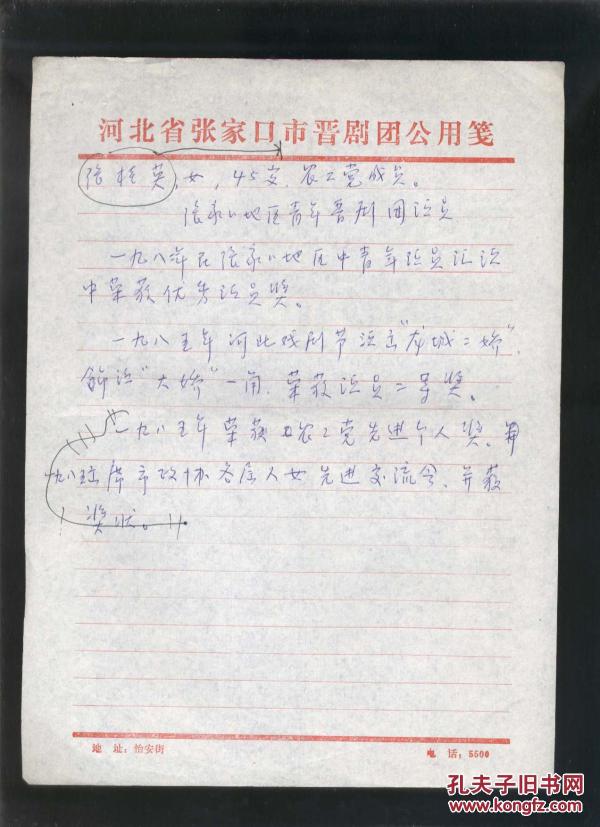 河北省张家口市晋剧团公用笺
张桂英,女,45岁.农工党成员。
张家口地区青年晋剧团演员
一九八年在张家口地区中青年演员汇演
中荣获优秀演员奖。
一九八五年河北戏剧节演出"龙城二娇",
饰演"大娇"一角.荣获演员二等奖。
一九八五年荣获农工党先进个人奖.
一九八五出席市政协各届人女先进交流会、并获
奖状。
地 址:怡安街
电 话:5500
孔夫子旧书网
www.kongfz.com